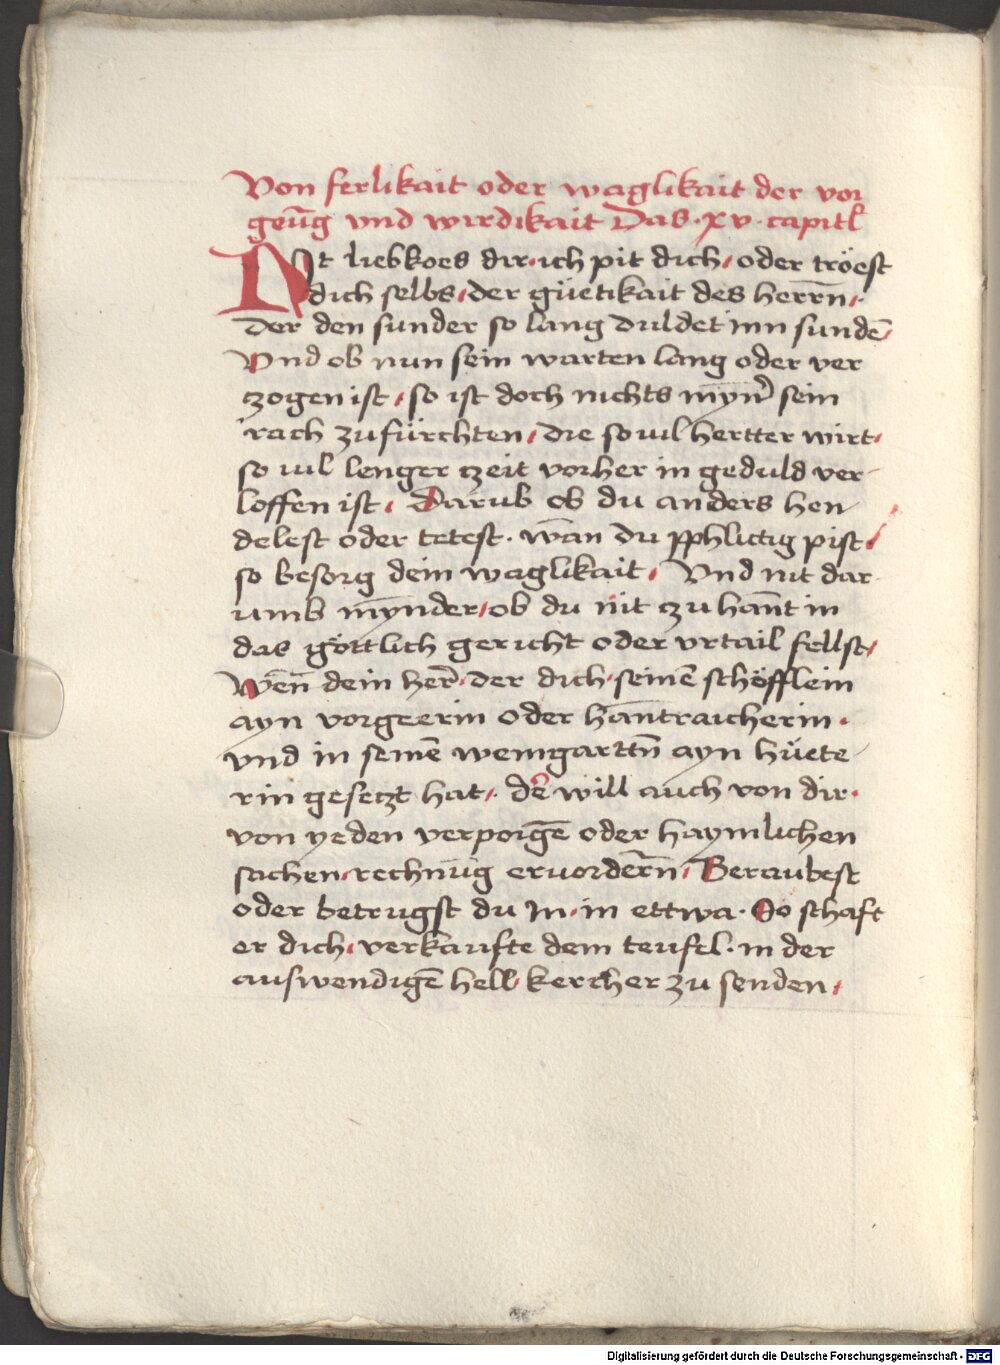 Von ferlikait oder waglikait der vor
geūg vnd wirdikait Das · xv · capitl
NIt liebkoes dir · ich pit dich / oder tröest
dich selbs / der güetikait des herrn̄ /
Der den sunder so lang duldet inn sundē
Vnd ob nun sein warten lang oder ver
zogen ist / so ist doch nichts myn̄d' sein
rach zu fürchten / die so uil hertter wirt /
so uil lenger zeit vorher in geduld ver-
loffen ist / Darub ob du anders hen
delest oder tetest · wān du pphlictig pist /
so besorg dein waglikait / Vnd nit dar-
umb mȳnder / ob du nit zu hānt in
das göttlich gericht oder vrtail fellst /
Wēn dein her' · der dich / seinē schöfflein
ayn vorgeerin oder hāntraicherin ·
vnd in seinē weingarttn̄ ayn hüete-
rin gesetzt hat / der will auch von dir ·
von yeden verporgē oder haymlichen
sachen / rechnūg eruordern̄ / Beraubest
oder betrugst du In / in ettwa · So schaft
er dich / verkaufte dem teufl · in der
auswendigē hell / kercher zu senden /
Digitalisierung gefördert durch die Deutsche Forschungsgemeinschaft - DFG